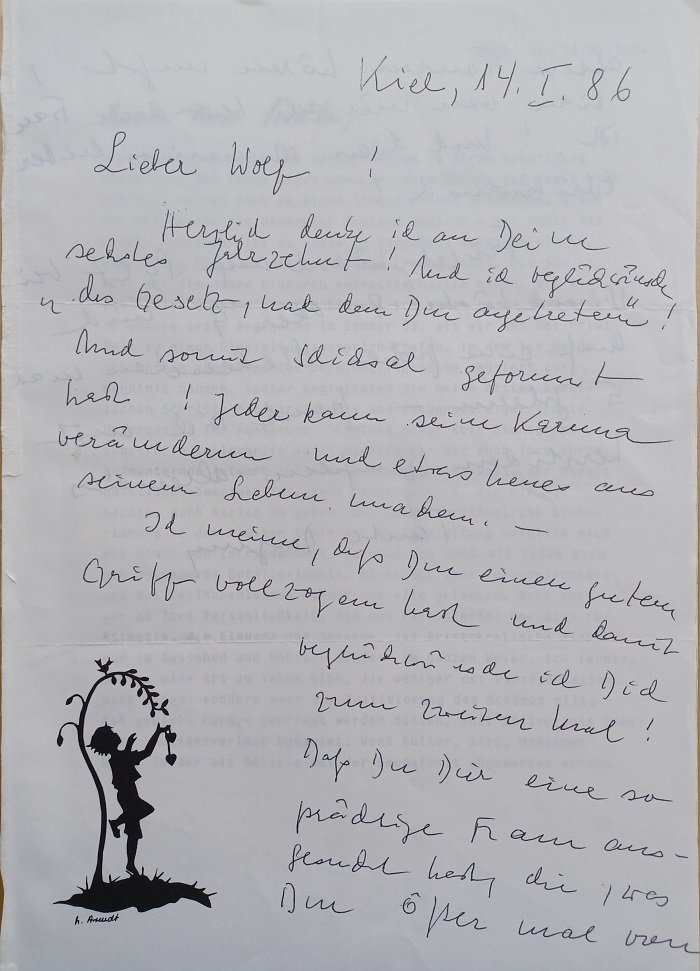 Kiel, 14. I. 86
Lieber Wolf !
Herzlich denke ich an Dein
sechstes Jahrzehnt! Und ich beglückwünsche
das Gesetz, nach dem Du angetreten"!
Und somit Schicksal geformt
hast ! Jeder kann sein Karma
verändern und etwas Neues aus
seinem Leben machen. —
Ich meine, daß Du einen guten
Griff vollzogen hast und damit
beglückwünsche ich Dich
zum zweiten Mal!
Daß Du Dir eine so
prächtige Frau aus-
gesucht hast, die, was
Du öfter mal von
Arndt